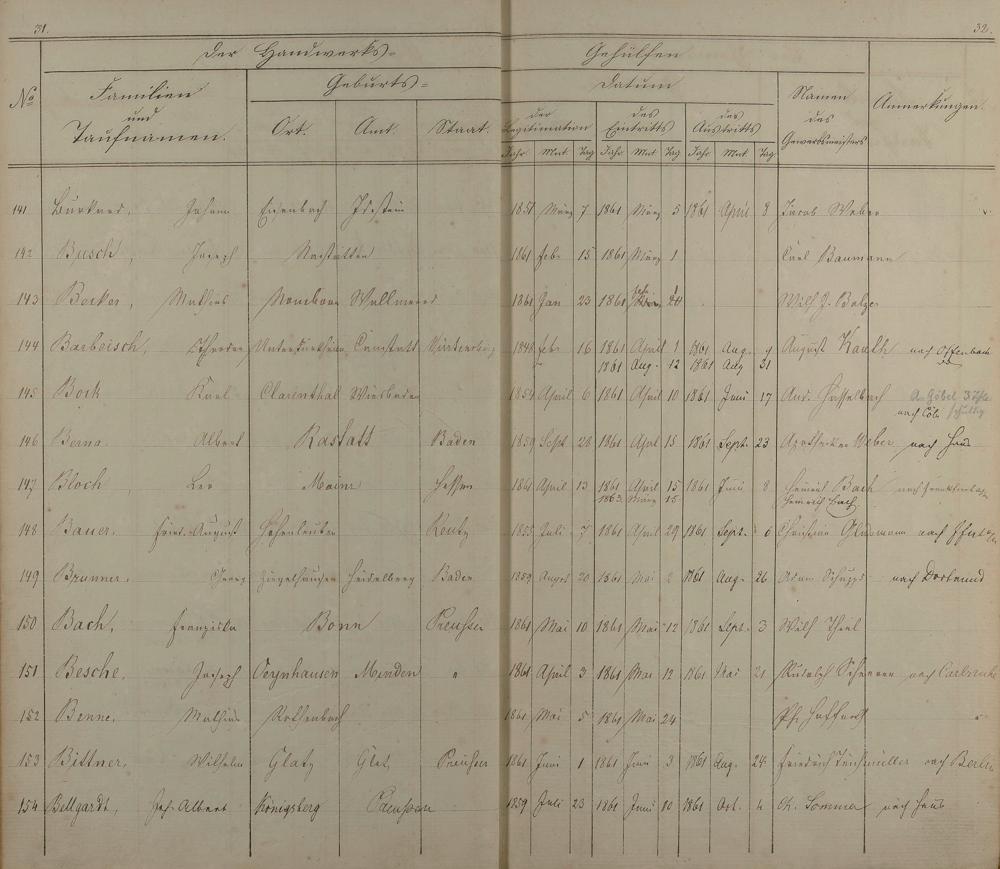 31.
32.
Der Handwerks=
Gehülfen
No
Familien
und
Taufnamen.
Geburts=
Ort. Amt. Staat.
Datum
der Legitimation
des Eintritts
des Austritts
Jahr Mnt. Tag Jahr Mnt Tag Jahr Mnt. Tag
Namen
des
Gewerbsmeisters
Anmerkungen.
141 Johann Eisenbach Idstein 1851 März 7 1861 März 5 1861 April 8 Jacob Weber
142 Busch, Joseph Nastätten 1861 Febr 15 1861 März 1 Carl Baumann
143 Becker, Mathias Wallmerod 1861 Jan 23 1861 24 Wilh. J.
144 Barbeisch, Untertürkheim Cannstatt 1848 Febr 16 1861 April 1 1861 Aug. 9 August nach Offenbach
1861 Aug. 12 1861 Aug 31
145 Bork Karl Clarenthal Wiesbaden 1851 April 6 1861 April 10 1861 Juni 17 And. Hasselbach
nach Cöln schuldig
146 Berna. Albert Rastatt Baden 1859 Sept 28 1861 April 15 1861 Sept. 23 Weber nach Haus
147 Bloch, Leo Mainz Hessen 1861 April 13 1861 April 15 1861 Juni 8 Heinrich Bach
1863 März 15 Heinrich Bach
148 Bauer. Fried. August 1855 Juli 7 1861 April 29 1861 Sept. 6 Christian nach
149 Brunner. Georg Ziegelhausen Heidelberg Baden 1859 August 20 1861 Mai 2 1861 Aug. 26 Adam Schupp nach Dortmund
150 Bach, Franziska Bonn Preußen 1861 Mai 10 1861 Mai 12 1861 Sept. 3 Wilh Theil
151 Besche. Joseph Oeynhausen Minden " 1861 April 3 1861 Mai 12 1861 Mai 21 Rudolph nach Carlsruhe
152 Benne. Mathias Rothenbach 1861 Mai 5 1861 Mai 24 Ph.
153 Bittner. Wilhelm Glatz Glatz Preußen 1861 Juni 1 1861 Juni 3 1861 Aug. 24 Friedrich Teichmüller nach Berlin
154 Bellgardt, Joh. Albert Königsberg Preußen 1859 Juli 23 1861 Juni 10 1861 Oct. 4 Ch. Sommer nach Haus